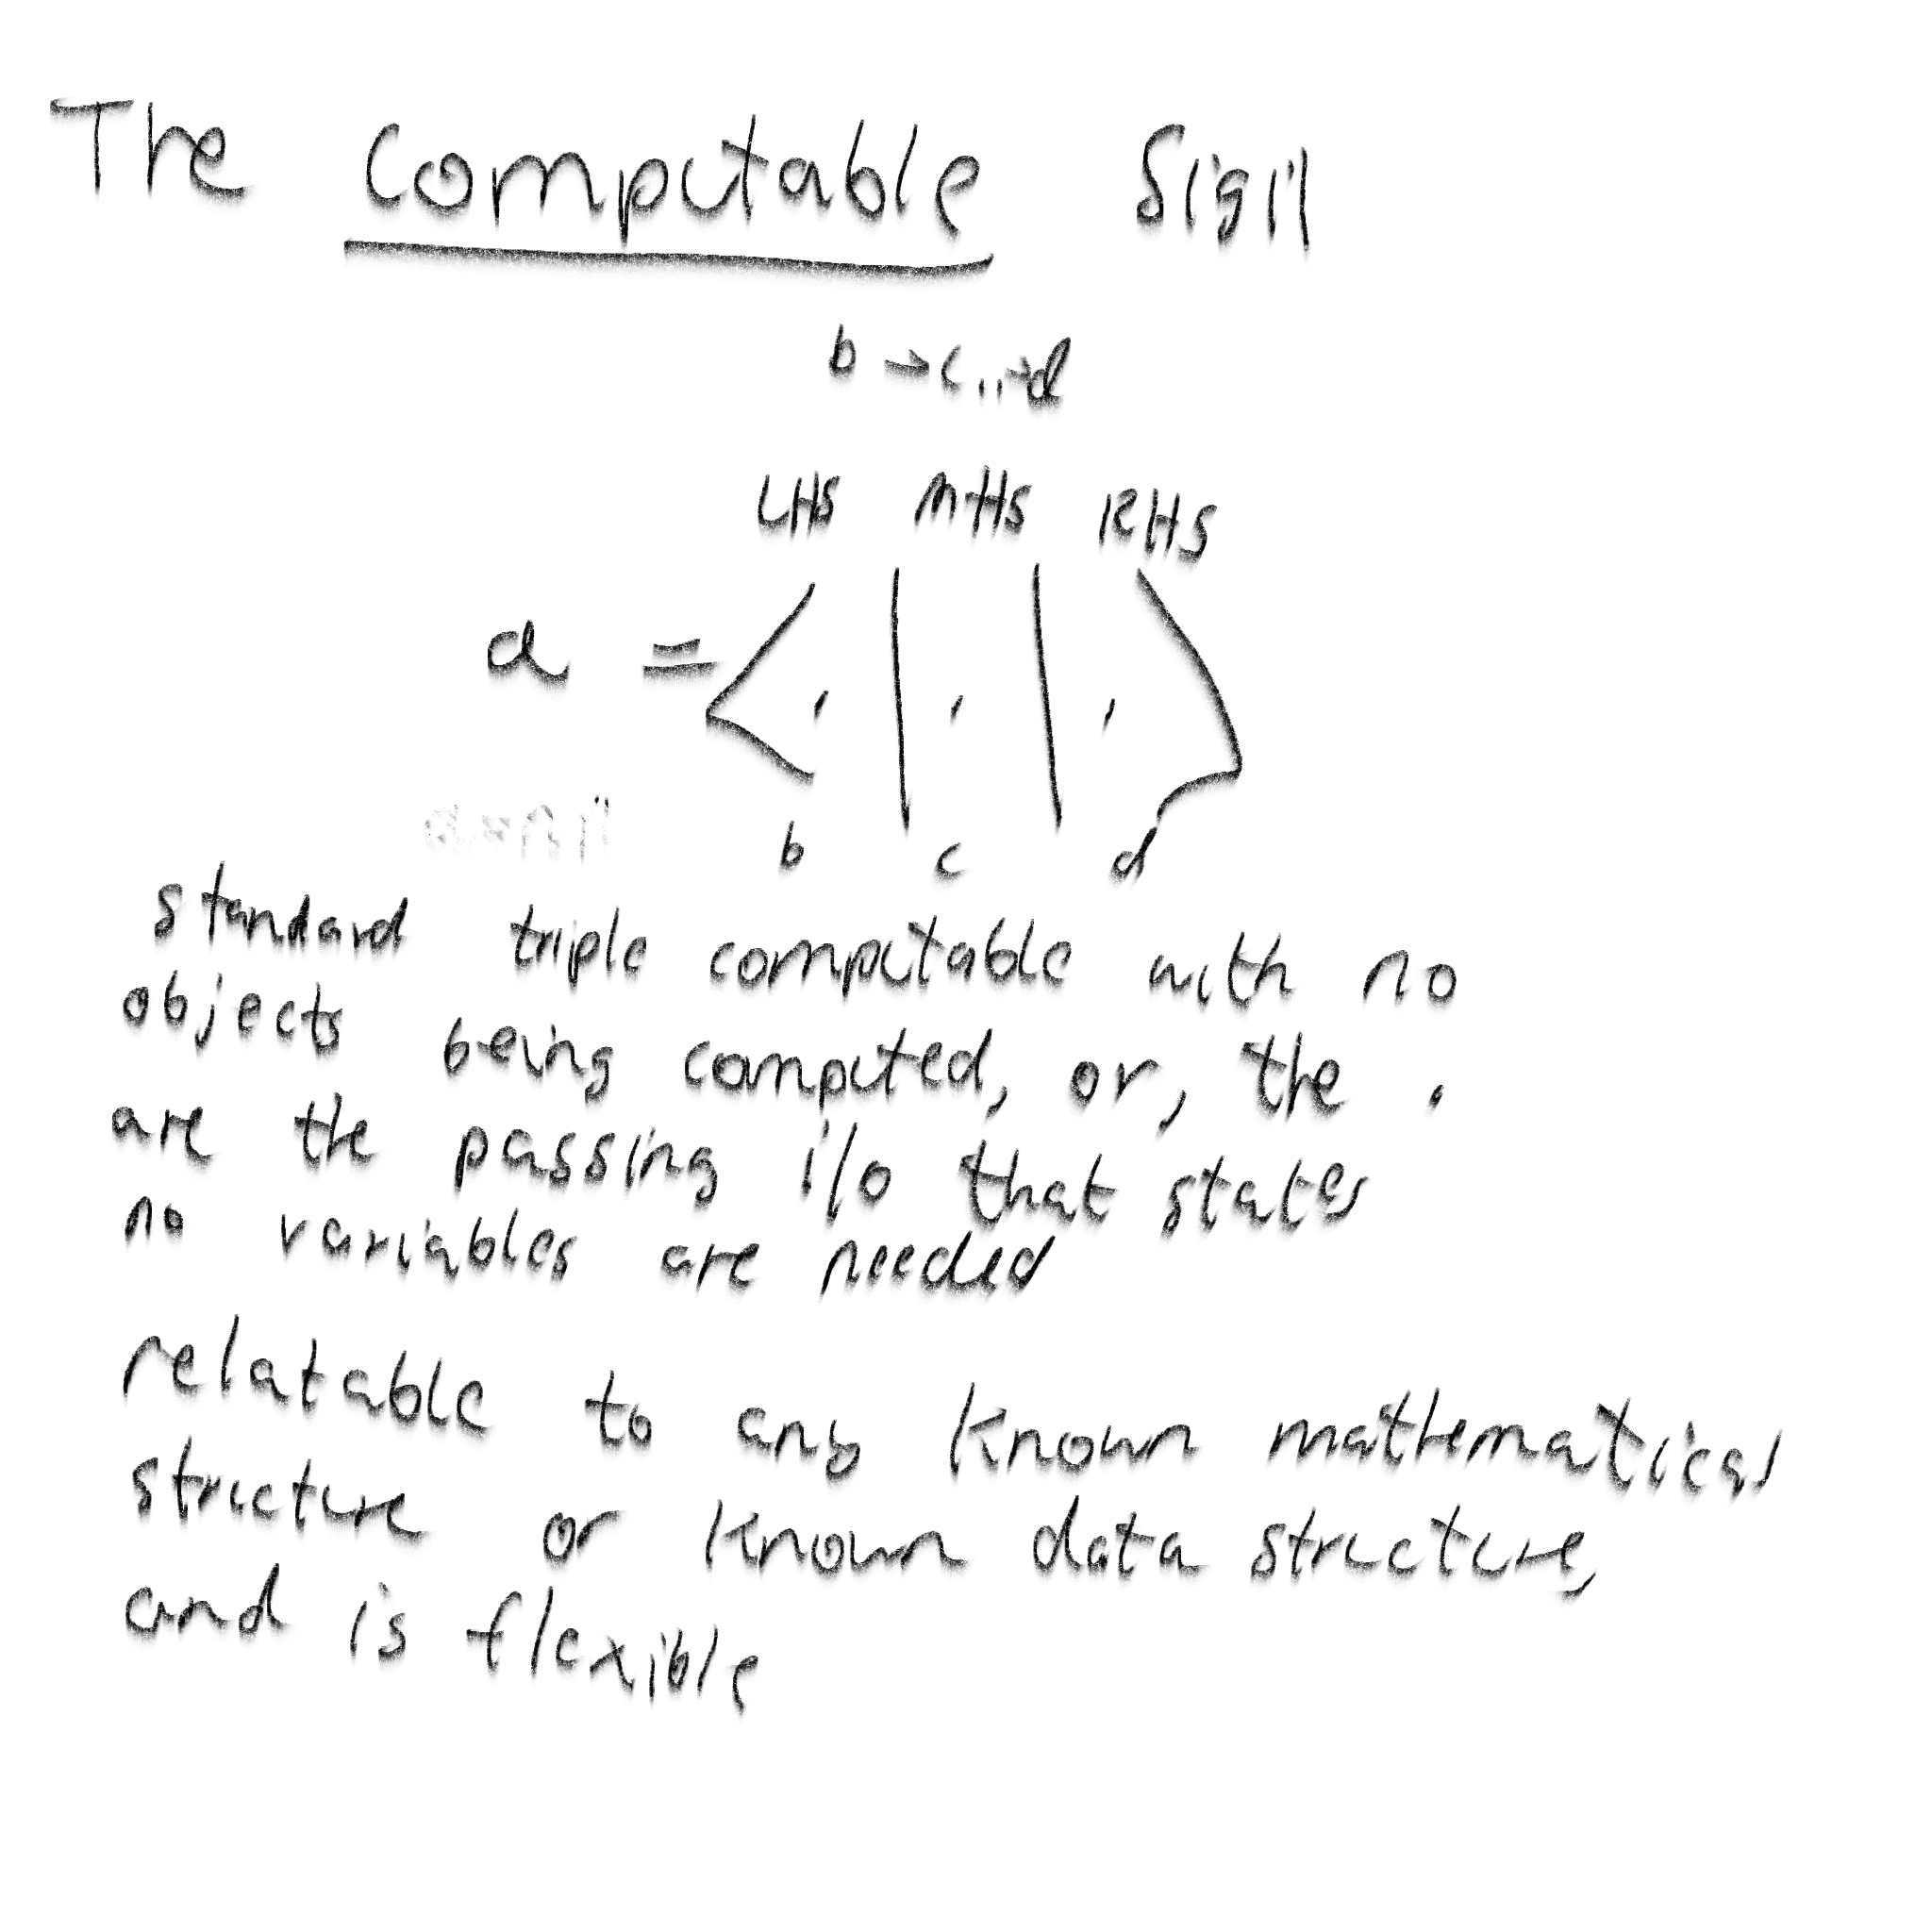 The Computable Sigil
b → c ..→ d
LHS MHS RHS
a = < . | . | . >
b c d
standard triple computable with no
objects being computed, or, the .
are the passing i/o that states
no variables are needed
relatable to any known mathematical
structure or known data structure,
and is flexible